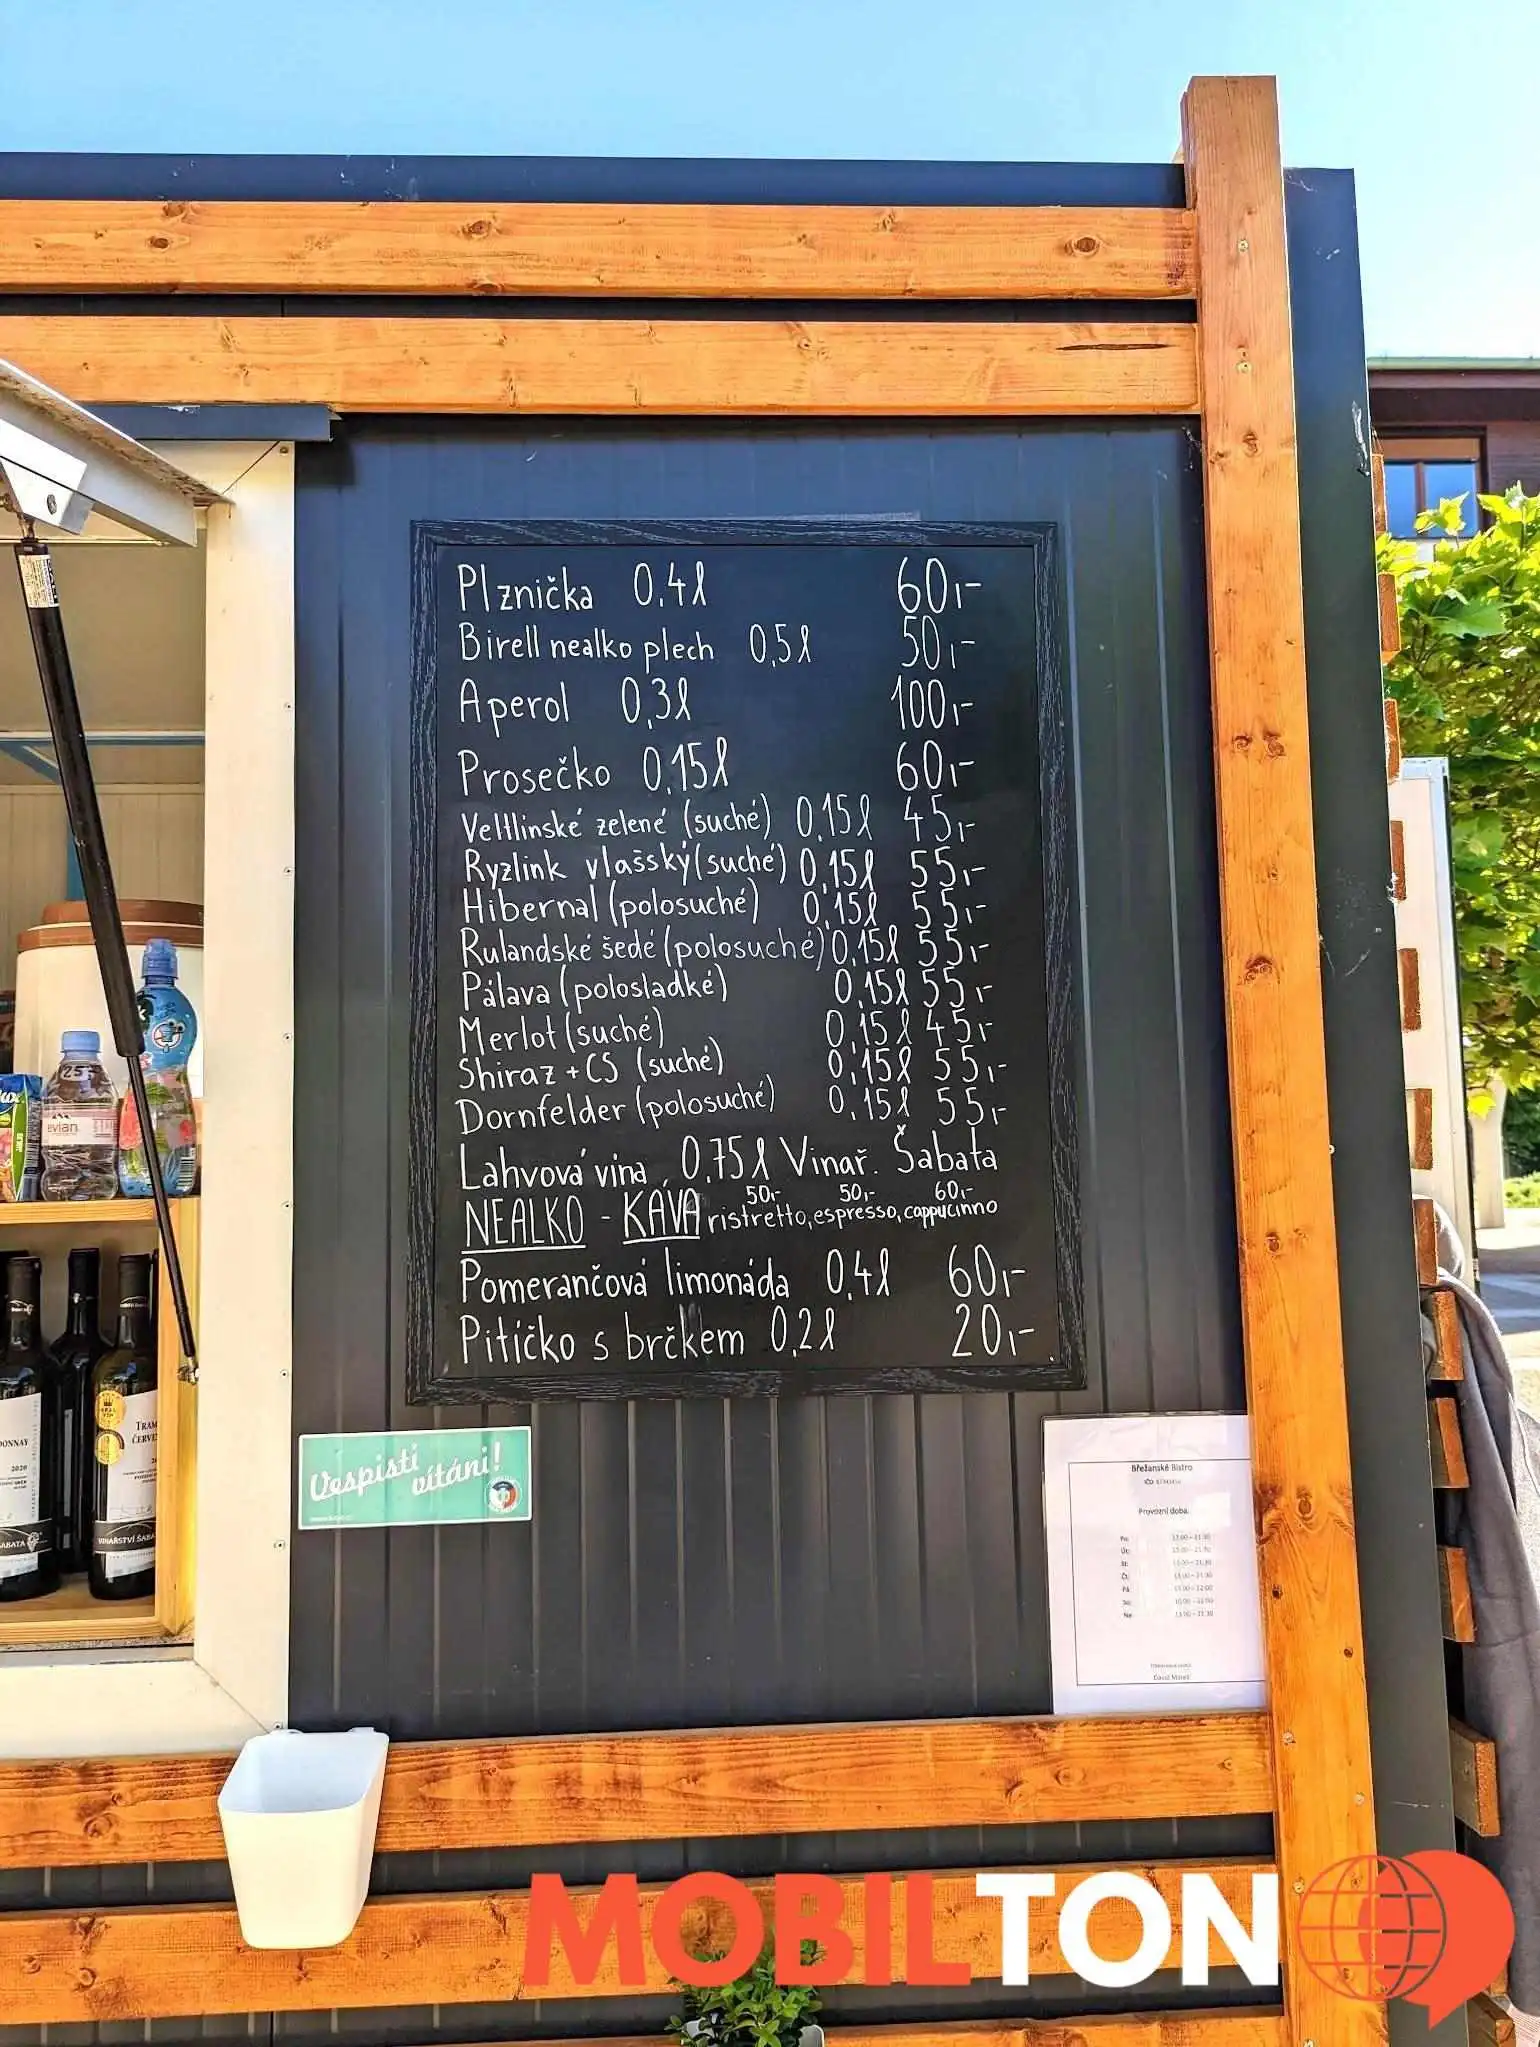 Plznička 0,4l 60,-
Birell nealko plech 0,5l 50,-
Aperol 0,3l 100,-
Prosečko 0,15l 60,-
Veltlinské zelené (suché) 0,15l 45,-
Ryzlink vlašský (suché) 0,15l 55,-
Hibernal (polosuché) 0,15l 55,-
Rulandské šedé (polosuché) 0,15l 55,-
Pálava (polosladké) 0,15l 55,-
Merlot (suché) 0,15l 45,-
Shiraz + CS (suché) 0,15l 55,-
Dornfelder (polosuché) 0,15l 55,-
Lahvová vina 0,75l Vinař. Šabata
50,- 50,- 60,-
NEALKO - KÁVA ristretto, espresso, cappucinno
Pomerančová limonáda 0,4l 60,-
Pitíčko s brčkem 0,2l 20,-
25,-
evian
DONNAY
2020
ŠABATA
TRAM
ČERVE
VINAŘSTVÍ ŠABA
Vespisti
vítáni!
Břežanské Bistro
IČO
Provozní doba:
Po:
Út:
St:
Čt:
Pá:
So:
Ne
MOBILTON